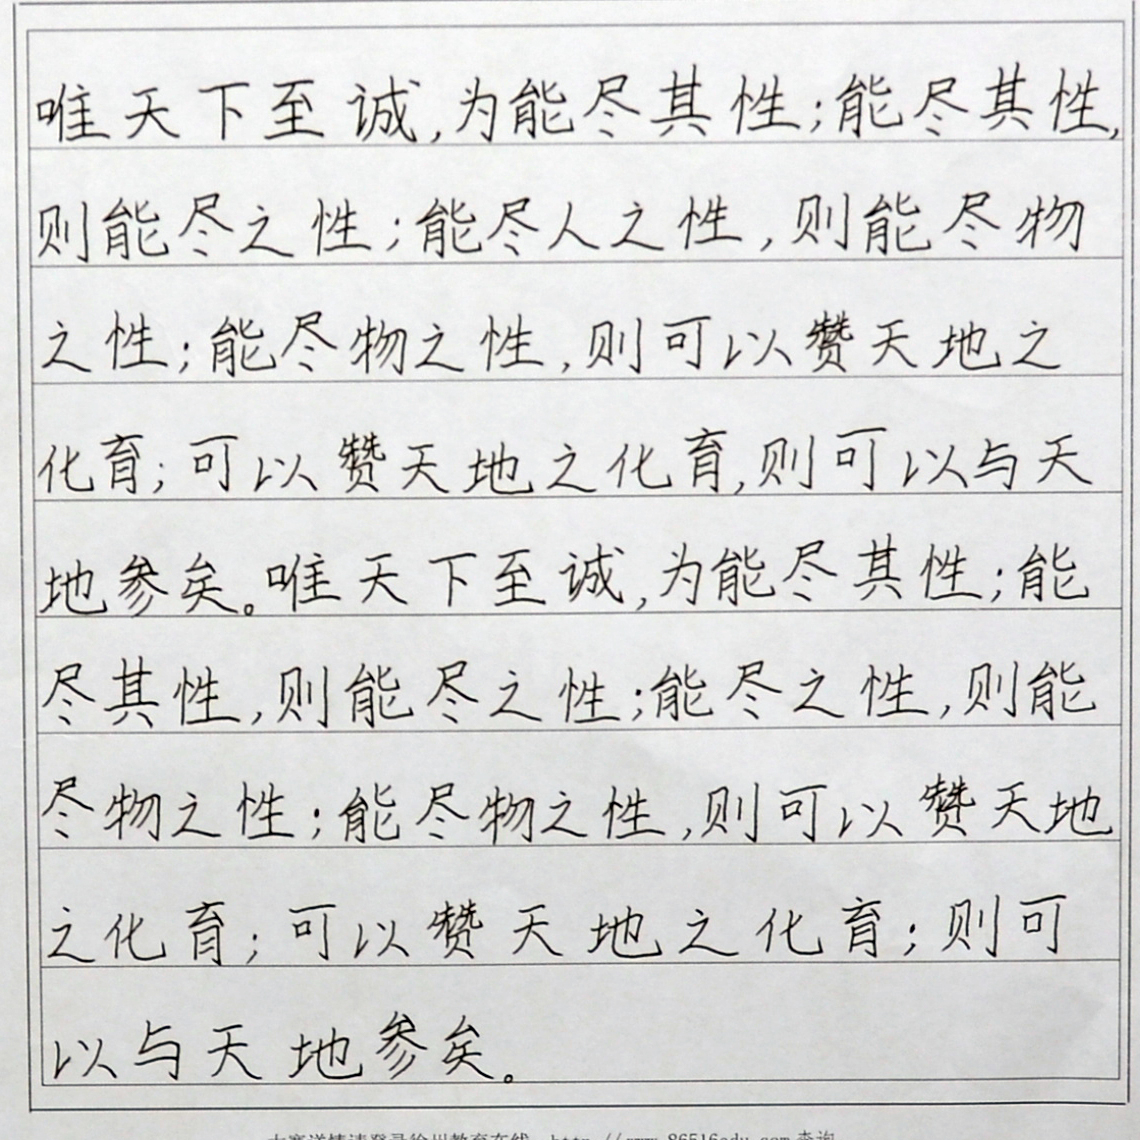 唯天下至诚,为能尽其性;能尽其性,
则能尽之性;能尽人之性,则能尽物
之性;能尽物之性,则可以赞天地之
化育;可以赞天地之化育,则可以与天
地参矣。唯天下至诚,为能尽其性;能
尽其性,则能尽之性;能尽之性,则能
尽物之性;能尽物之性,则可以赞天地
之化育;可以赞天地之化育;则可
以与天地参矣。
大赛详情请登录徐州教育在线 http://www.86516edu.com查询